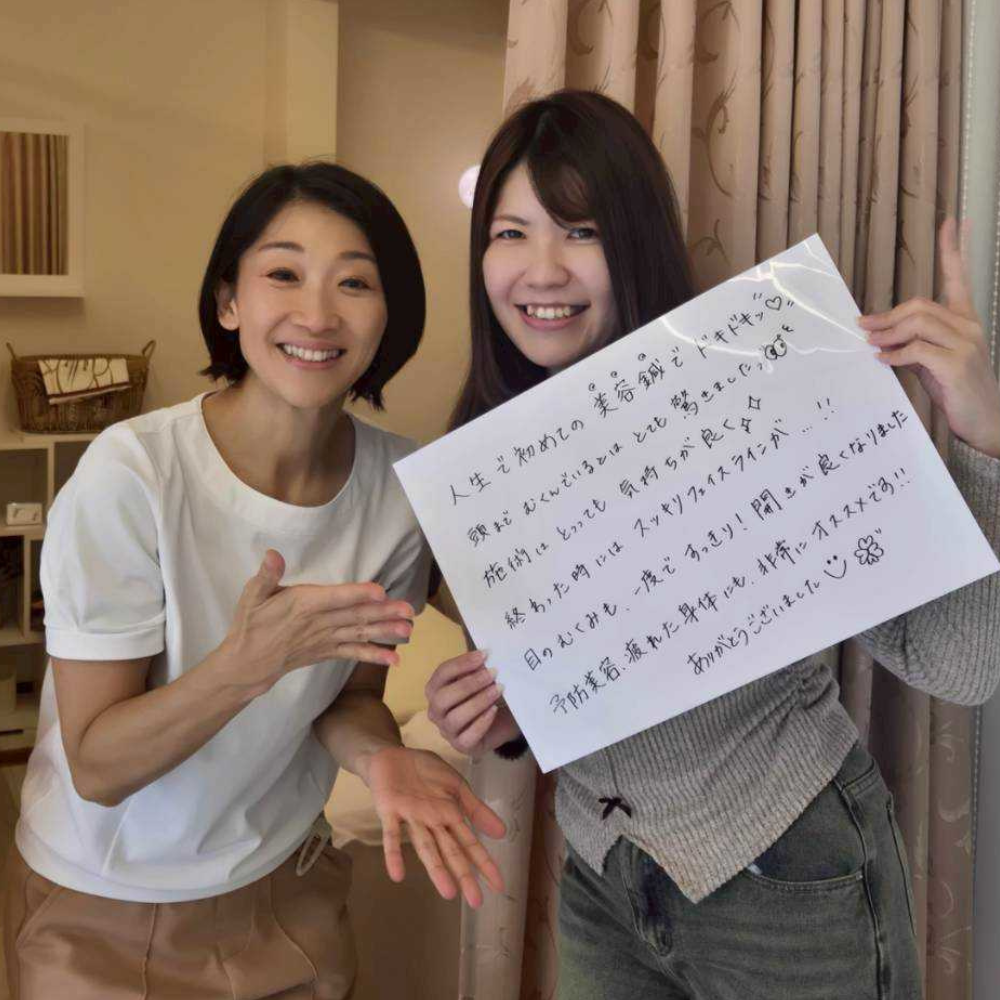 人生で初めての美容鍼でドキドキッ♡
頭までむくんでいるとは とても驚きましたっ
施術はとっっても 気持ちが良く
終わった時には スッキリフェイスラインが…!!
目のむくみも、一度で すっきり!開きが良くなりました
予防美容、疲れた身体にも、非常にオススメです!!
ありがとうございました